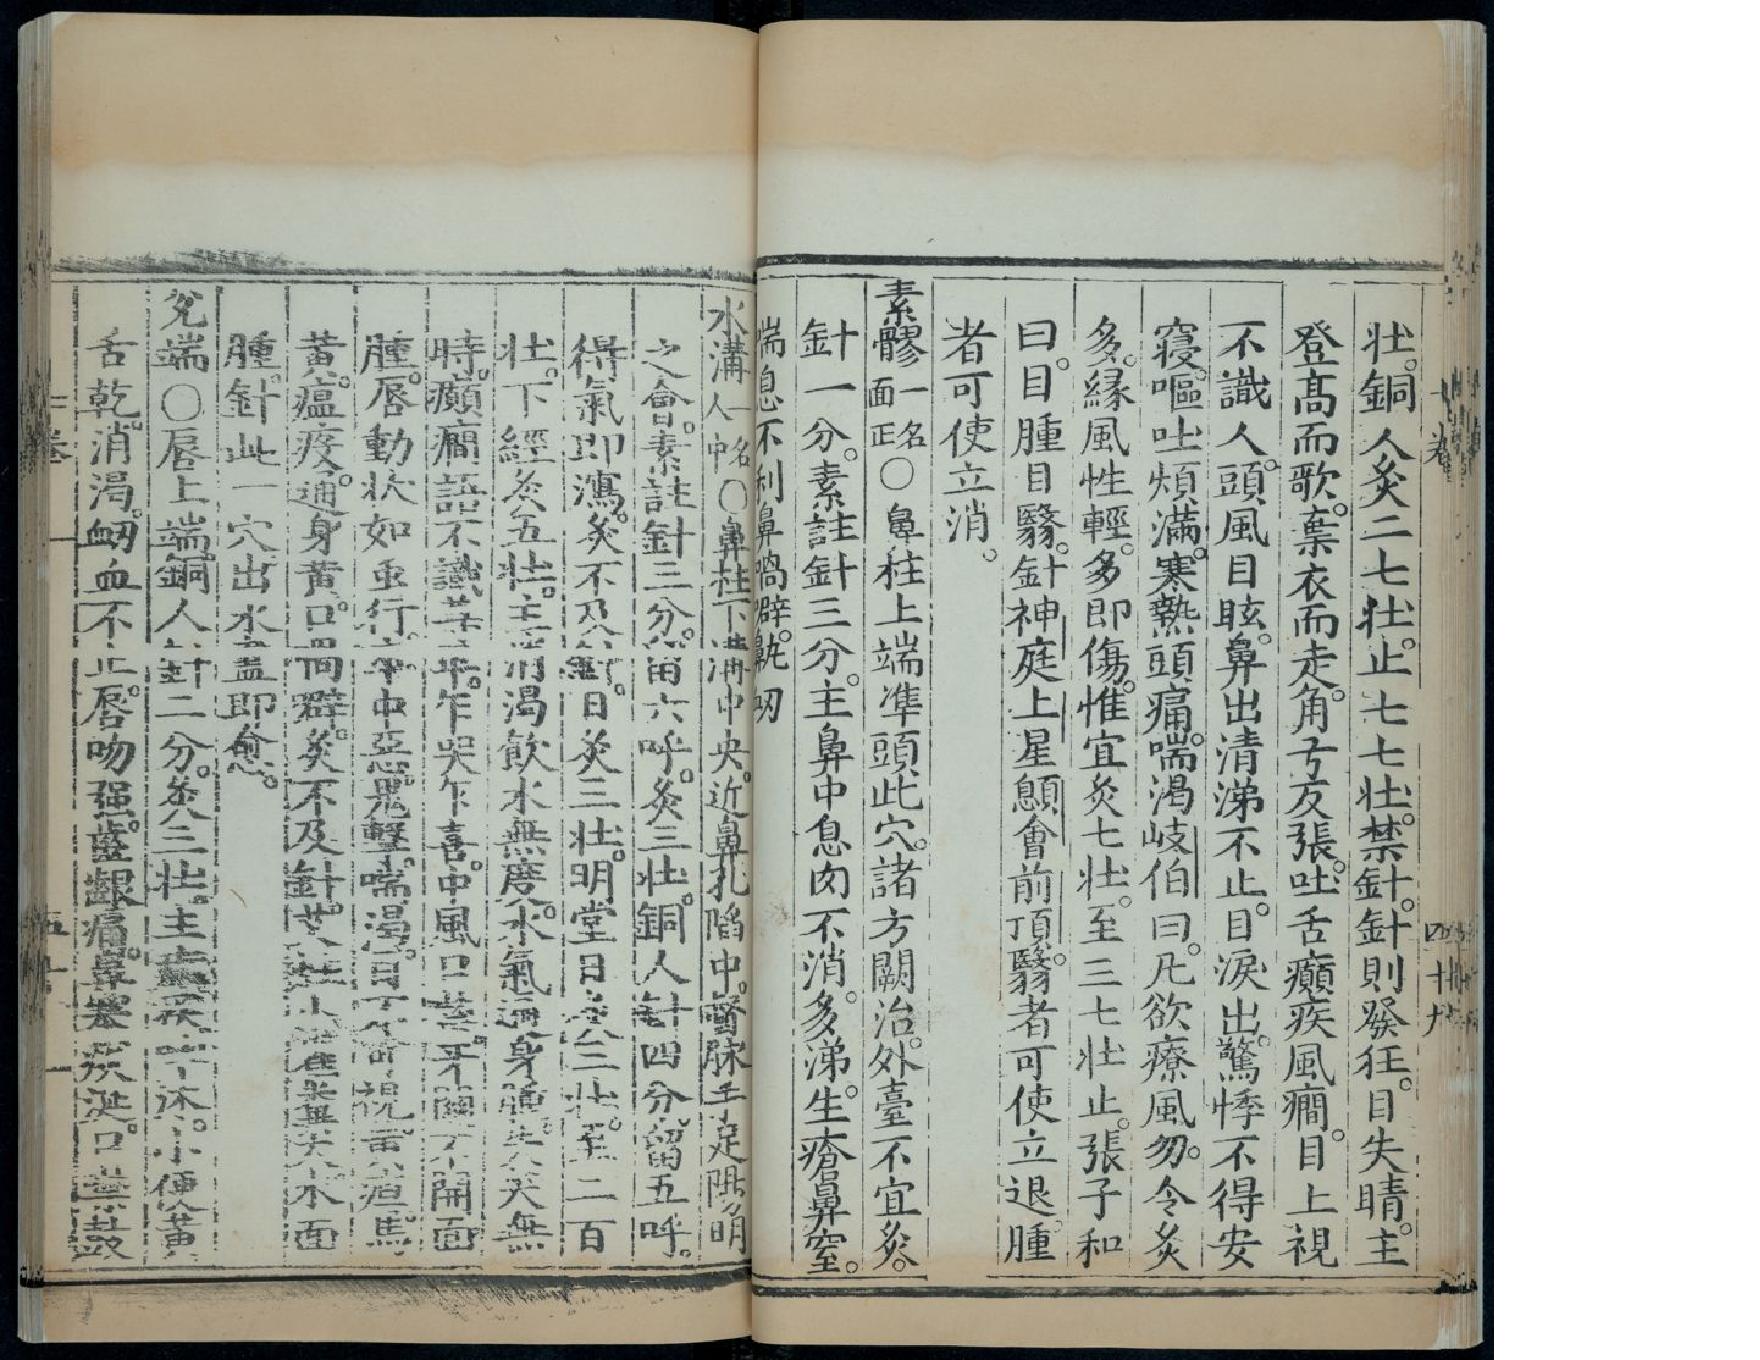 壯。銅人灸二七壯。止七七壯。禁針。針則發狂。目失睛。主
登髙而歌。棄衣而走。角弓反張。吐舌癲疾風癎。目上視
不識人。頭風目眩。鼻出清涕不止。目淚出。驚悸不得安
寢。嘔吐煩滿。寒熱頭痛。喘渴岐伯曰。凡欲療風勿。令灸
多。緣風性輕。多即傷。惟宜灸七壯。至三七壯止。張子和
曰。目腫目翳。針神庭上星顖會前頂。翳者可使立退。腫
者可使立消。
素髎一名面正〇鼻柱上端凖頭此穴。諸方闕治。外臺不宜灸。
針一分。素註針三分。主鼻中息肉不消。多涕。生瘡鼻窒。
喘息不利鼻喎僻。鼽衂
水溝一名人中〇鼻柱下溝中央。近鼻孔䧟中。督脉手足陽明
之會。素註針三分。留六呼。灸三壯。銅人針四分。留五呼。
得氣即瀉。灸不及針。日灸三壯。明堂日灸三壯。至二百
壯。下經灸五壯。主消渴飲水無度。水氣遍身腫。失笑無
時。癲癎語不識尊卑。乍哭乍喜。中風口噤。牙關不開面
腫。唇動狀如虫行。卒中惡。鬼擊。喘渴。目不可視。黃疸馬
黃。瘟疫。遍身黃。口喎僻。灸不及針。艾炷小雀糞大水面
腫。針此一穴出水盡即愈。
兌端〇唇上端。銅人針二分。灸三壯。主癲疾。吐沫。小便黃
舌乾。消渴。衂血不止。唇吻强。齒齦痛。鼻塞痰涎。口噤鼓